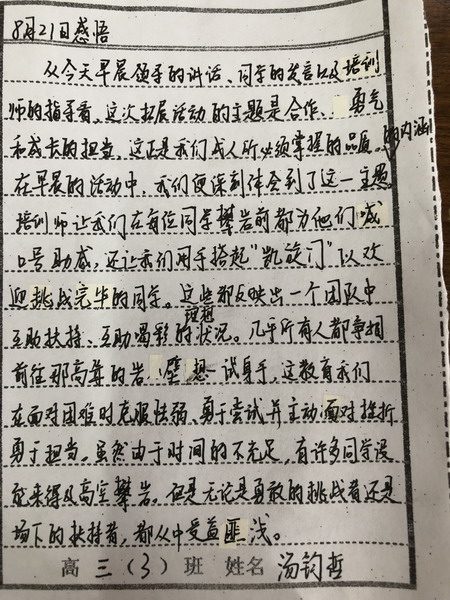 8月21日感悟
从今天早晨领导的讲话、同学的发言以及培训
师的指导看,这次拓展活动的主题是合作、勇气
和成长的担当,这正是我们成人所必须掌握的品质
的内涵
在早晨的活动中,我们便深刻体会到了这一主题
培训师让我们在每位同学攀岩前都为他们喊
口号助威,还让我们用手搭起"凯旋门"以欢
迎挑战完毕的同学。这些都反映出一个团队中
互助扶持、互助喝彩的理想状况。几乎所有人都争相
前往那高耸的岩壁想一试身手,这教育我们
在面对困难时克服怯弱、勇于尝试并主动面对挫折
勇于担当。虽然由于时间的不充足,有许多同学没
能来得及高空攀岩。但是无论是勇敢的挑战者还是
场下的扶持者,都从中受益匪浅。
高三(3)班 姓名 汤钧哲